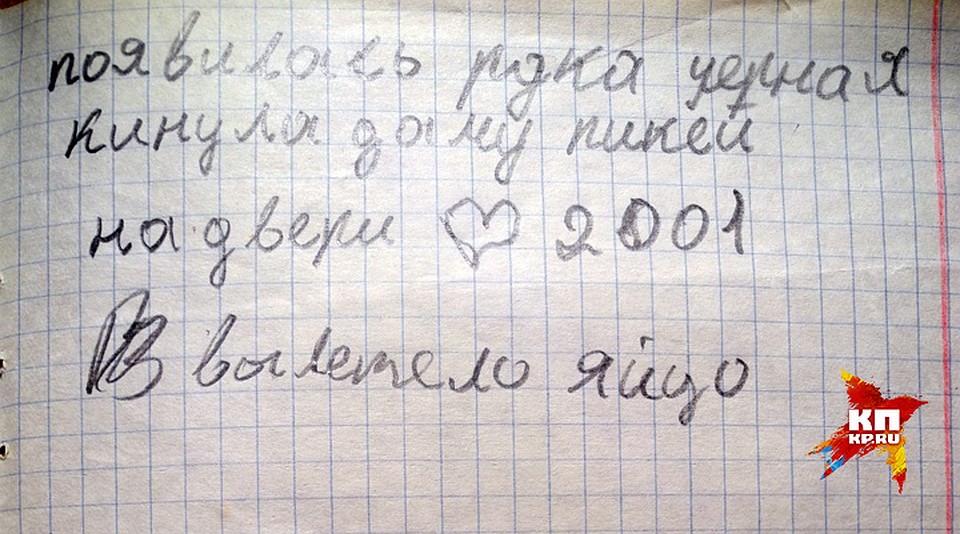 появилась рдка черная
кинула даму пикей
на двери ♡ 2001
В вылетело яйцо
КП
KP.RU